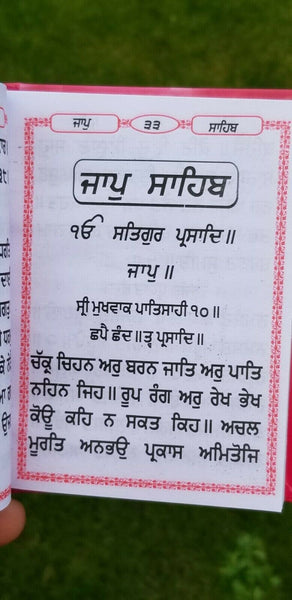 ਜਾਪੁ ੩੩ ਸਾਹਿਬ
ਜਾਪੁ ਸਾਹਿਬ
ੴ ਸਤਿਗੁਰ ਪ੍ਰਸਾਦਿ॥
ਜਾਪੁ ॥
ਸ੍ਰੀ ਮੁਖਵਾਕ ਪਾਤਿਸਾਹੀ ੧੦॥
ਛਪੈ ਛੰਦ॥ ਤ੍ਵ ਪ੍ਰਸਾਦਿ॥
ਚੱਕ੍ਰ ਚਿਹਨ ਅਰੁ ਬਰਨ ਜਾਤਿ ਅਰੁ ਪਾਤਿ
ਨਹਿਨ ਜਿਹ॥ ਰੂਪ ਰੰਗ ਅਰੁ ਰੇਖ ਭੇਖ
ਕੋਊ ਕਹਿ ਨ ਸਕਤ ਕਿਹ॥ ਅਚਲ
ਮੂਰਤਿ ਅਨਭਉ ਪ੍ਰਕਾਸ ਅਮਿਤੋਜਿ